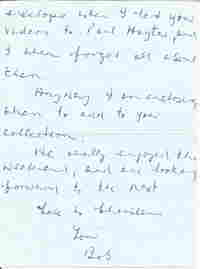 envelope when I sent your
videos to Paul Hayter, and
I then forgot all about
them.
Anyway I am enclosing
them to add to your
collection.
We really enjoyed the
weekend, and are looking
forward to the next
Love to
Love
Bob